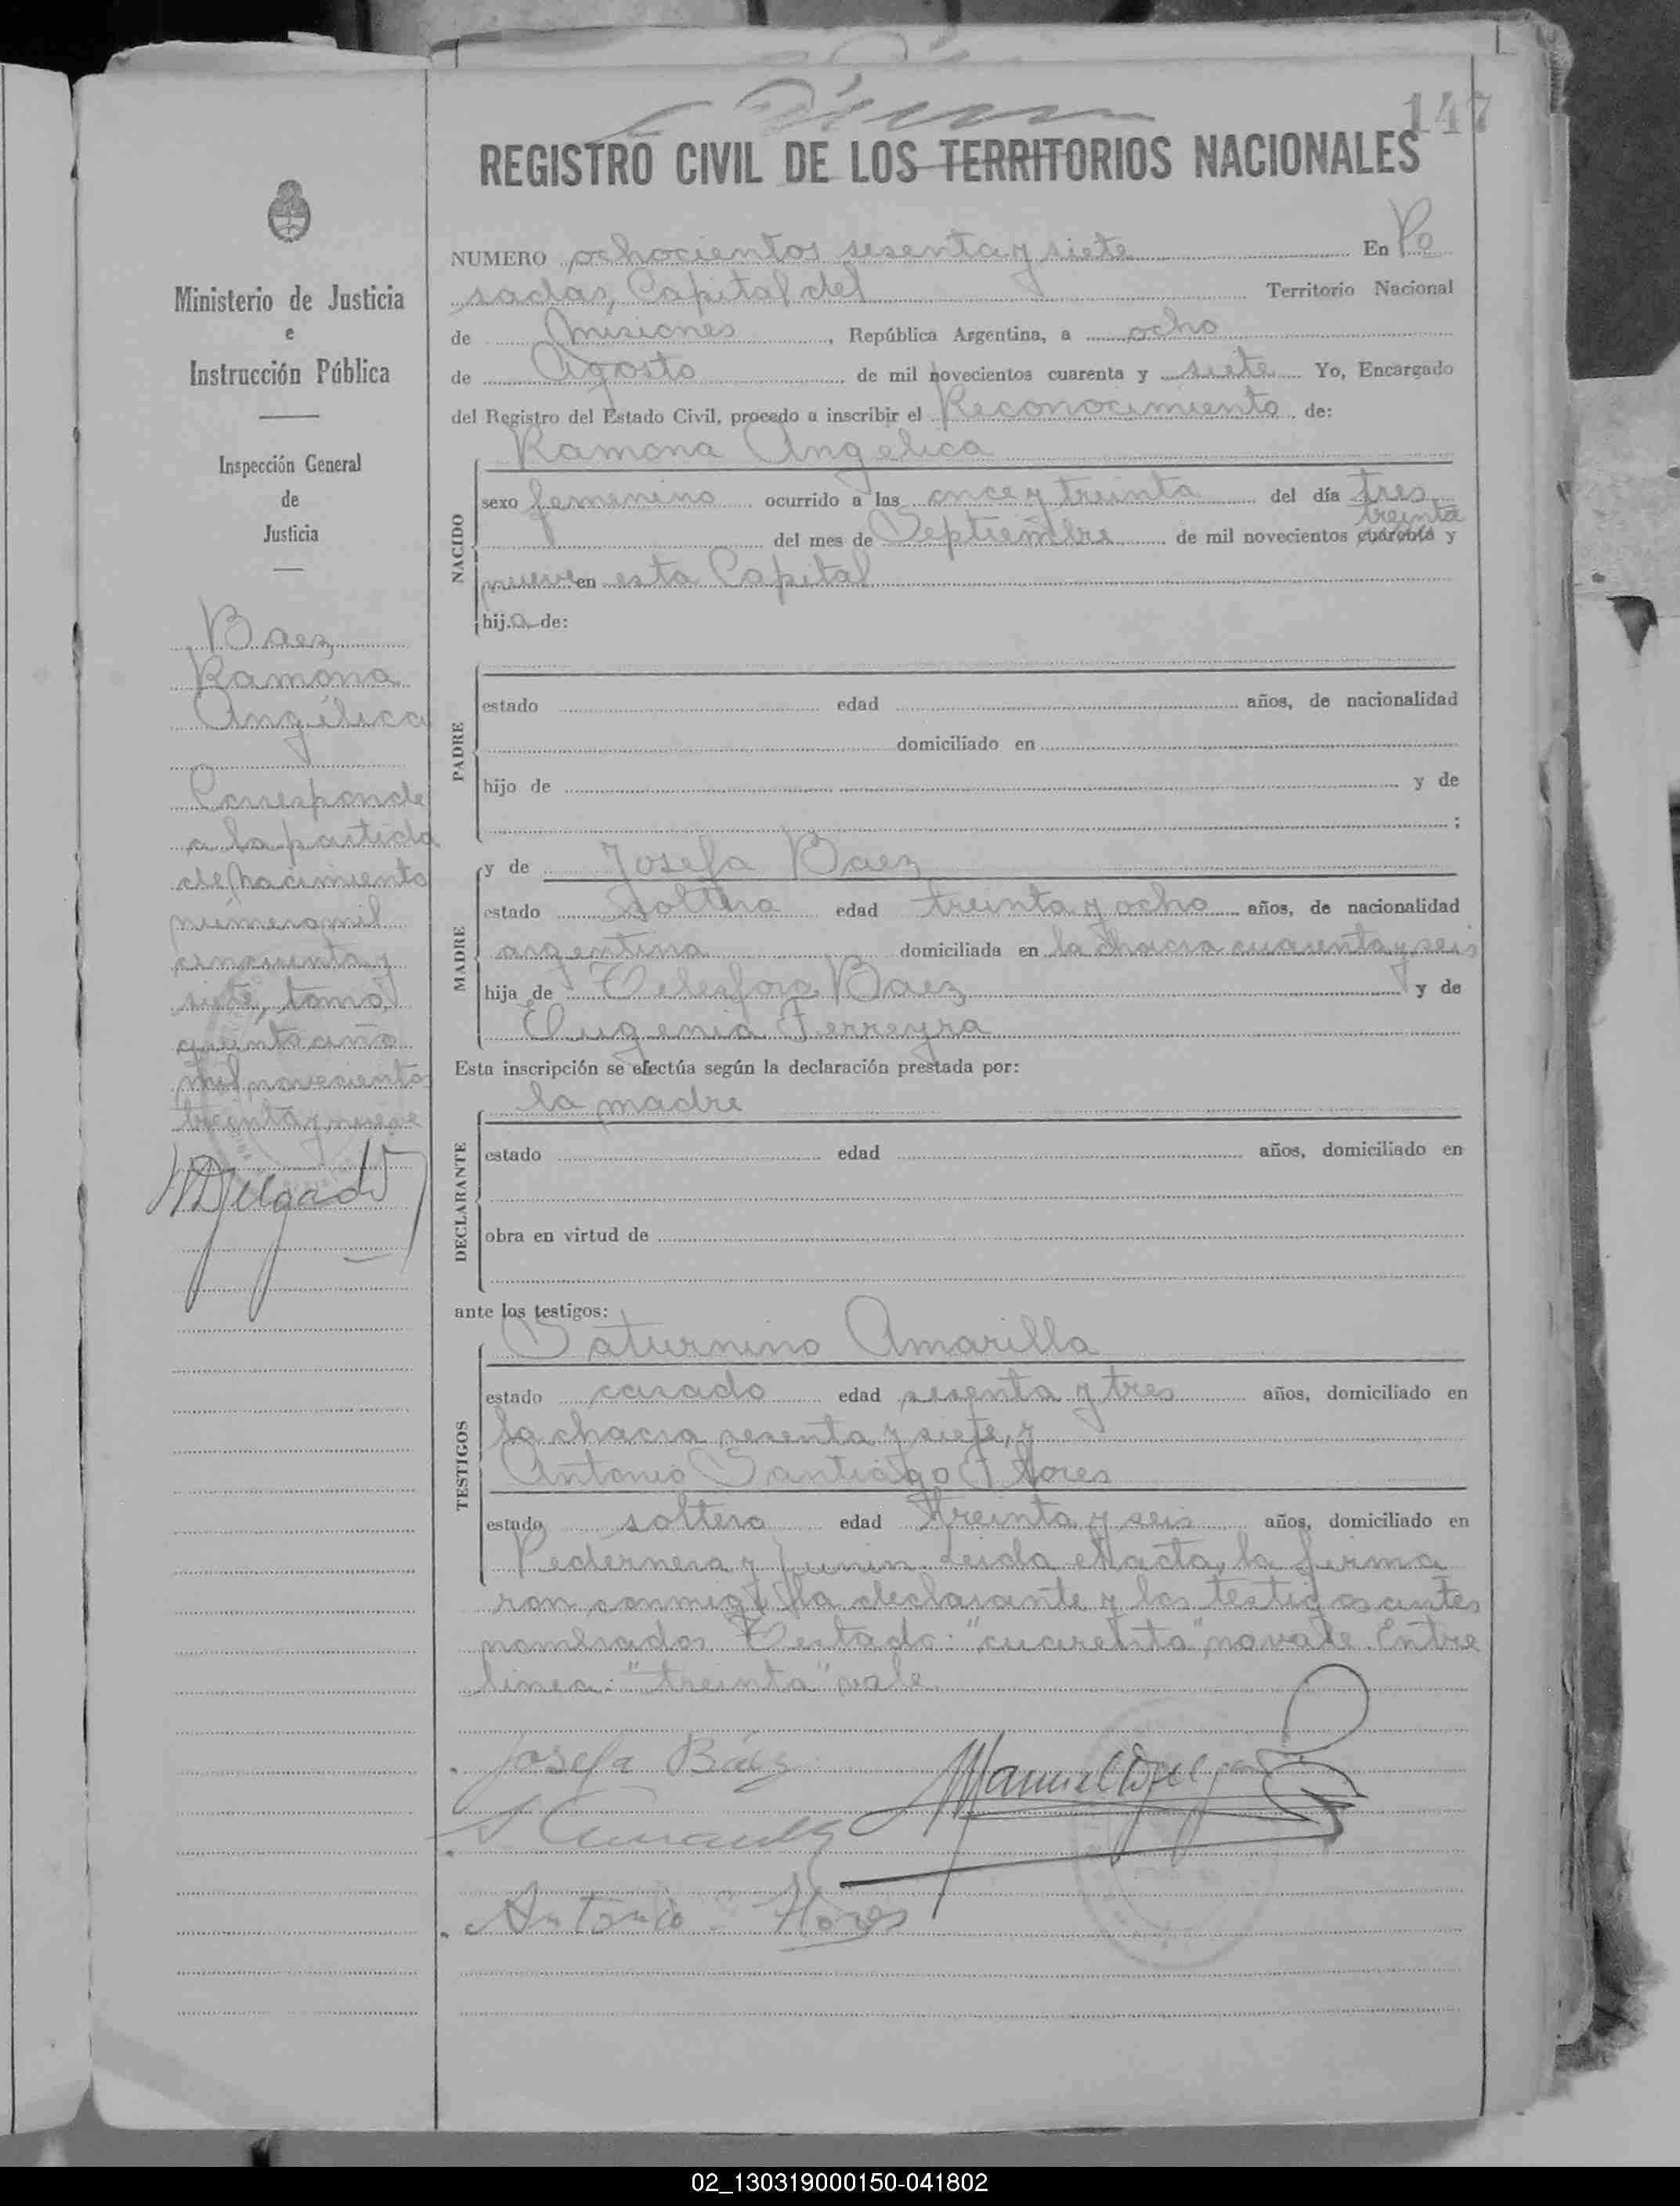 147
REGISTRO CIVIL DE LOS TERRITORIOS NACIONALES
Ministerio de Justicia
e
Instrucción Pública
Inspección General
de
Justicia
Baez
Ramona
Angélica
Corresponde
a la partida
de nacimiento
número mil
cincuenta y
siete, tomo
quinto año
mil novecientos
treinta y nueve
MDelgado
NUMERO ochocientos sesenta y siete En Po
sadas, Capital del Territorio Nacional
de Misiones, República Argentina, a ocho
de Agosto de mil novecientos cuarenta y siete Yo, Encargado
del Registro del Estado Civil, procedo a inscribir el Reconocimiento de:
Ramona Angelica
NACIDO
sexo femenino ocurrido a las once y treinta del día tres
treinta
del mes de Septiembre de mil novecientos cuarenta y
nueve en esta Capital
hija de:
PADRE
estado edad años, de nacionalidad
domiciliado en
hijo de y de
;
MADRE
y de Josefa Baez
estado soltera edad treinta y ocho años, de nacionalidad
argentina domiciliada en la chacra cuarenta y seis
hija de Telesforo Baez y de
Eugenia Ferreyra
Esta inscripción se efectúa según la declaración prestada por:
DECLARANTE
la madre
estado edad años, domiciliado en
obra en virtud de
ante los testigos:
TESTIGOS
Saturnino Amarilla
estado casado edad sesenta y tres años, domiciliado en
la chacra sesenta y siete, y
Antonio Santiago Flores
estado soltero edad treinta y seis años, domiciliado en
Pedernera y Junin. Leida el acta, la firma
ron conmigo la declarante y los testigos antes
nombrados. Testado: "cuarenta", no vale. Entre
linea: "treinta" vale.
Josefa Báez
Manuel Delgado
S Amarilla
Antonio S. Flores
02_130319000150-041802